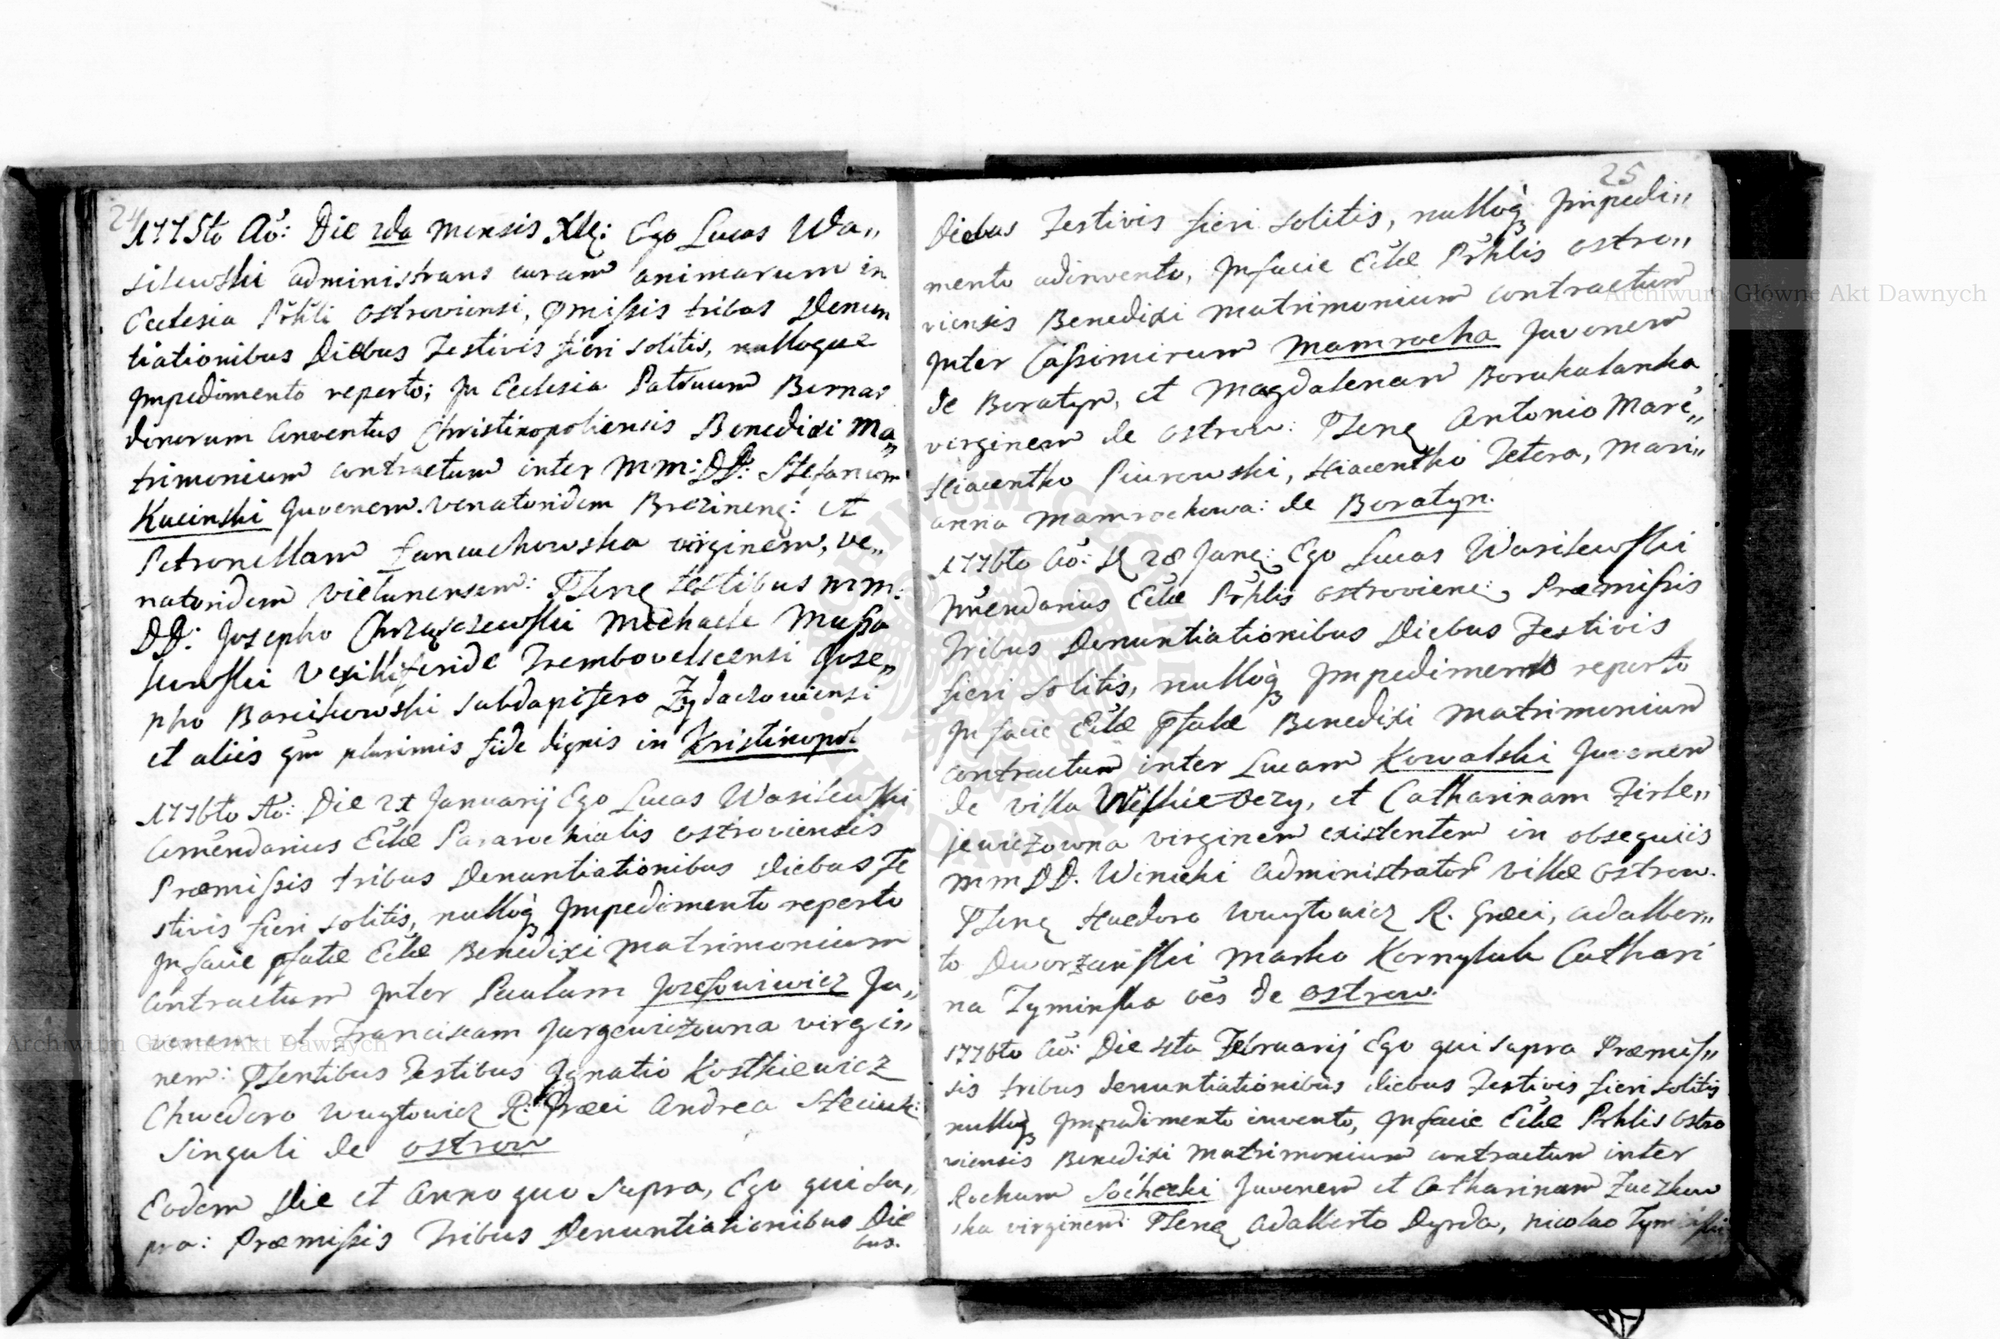 24
1775to Aō: Die 2da Mensis Xbr: Ego Lucas Wa„
silewski administrans curam animarum in
Ecclesia Pchli Ostroviensi, Pmissis tribus Denun
tiationibus Diebus Festivis fieri solitis, nulloque
Impedimento reperto; In Ecclesia Patruum Bernar
dinorum Conventus Christinopoliensis Benedixi Ma„
trimonium contractum inter MM: DD: Stefanum
Kucinski Juvenem Venatoridem Brezinens: et
Petronellam Łancuchowska virginem, ve„
natoridem Vielunensem: Psens testibus MM:
DD: Josepho Michaele
Vexilliferide Trembovelscensi Jose„
pho Subdapifero Zydaczowiensi
et aliis qm plurimis fide dignis in Kristinopol
1776to Ao: Die 21 Januarij Ego Lucas Wasilewski
Comēndarius Eclæ Pararochialis Ostroviensis
Præmissis tribus Denuntiationibus Diebus Fe
stivis fieri solitis, nulloq Impedimento reperto
In facie pfatæ Eclæ Benedixi Matrimonium
Contractum Inter Paulum Jozefowiewicz Ju„
venem et Franciscam Jurgewiczowna virgi„
nem: Psentibus Testibus Ignatio Kostkiewicz
Chwedoro Wuytowicz R: Græci Andrea
Singuli de Ostrow
Eodem Die et Anno quo Supra, Ego qui su„
pra: Præmissis Tribus Denuntiationibus Die
bus.
25
Diebus Festivis fieri solitis, nulloq Impedi„
mento adinvento, In facie Eclæ Pchlis Ostro„
viensis Benedixi Matrimonium contractum
Inter Cassimirum Mamrocha Juvenem
de Boratyn, et Magdalenam
virginem de Ostrow: Psens Antonio
Hiacentho Piurowski, Hiacentho Fetera, Mari„
anna Mamrochowa: de Boratyn.
1776to Aō: D 28 Jans: Ego Lucas Wasilewski
Eclæ Pchlis Ostroviens: Præmissis
Tribus Denuntiationibus Diebus Festivis
fieri solitis, nulloq Impedimento reperto
In facie Eclæ Pfatæ Benedixi Matrimonium
contractum inter Lucam Kowalski Juvenem
de villa et Catharinam Zirle„
jewiczowna virginem existentem in obsequiis
MM DD. Winicki Administrator villæ Ostrow.
Psens Huedoro Wuytowicz R. Græci, Adalber„
to Dworzanski Marko Kornyluk Cathari
na Zyminska oēs de Ostrow.
1776to Aō: Die 4ta Februarij Ego qui supra Præmis„
sis tribus denuntiationibus diebus Festivis fieri solitis
nulloq Impedimento invento, In facie Eclæ Pchlis Ostro
viensis Benedixi Matrimonium contractum inter
Rochum Sochecki Juvenem et Catharinam Zuczkow
ska virginem: Psens Adalberto Dyrda, Nicolao Zyminski
Archiwum Główne Akt Dawnych
Archiwum Główne Akt Dawnych
ARCHIWUM GŁÓWNE AKT DAWNYCH